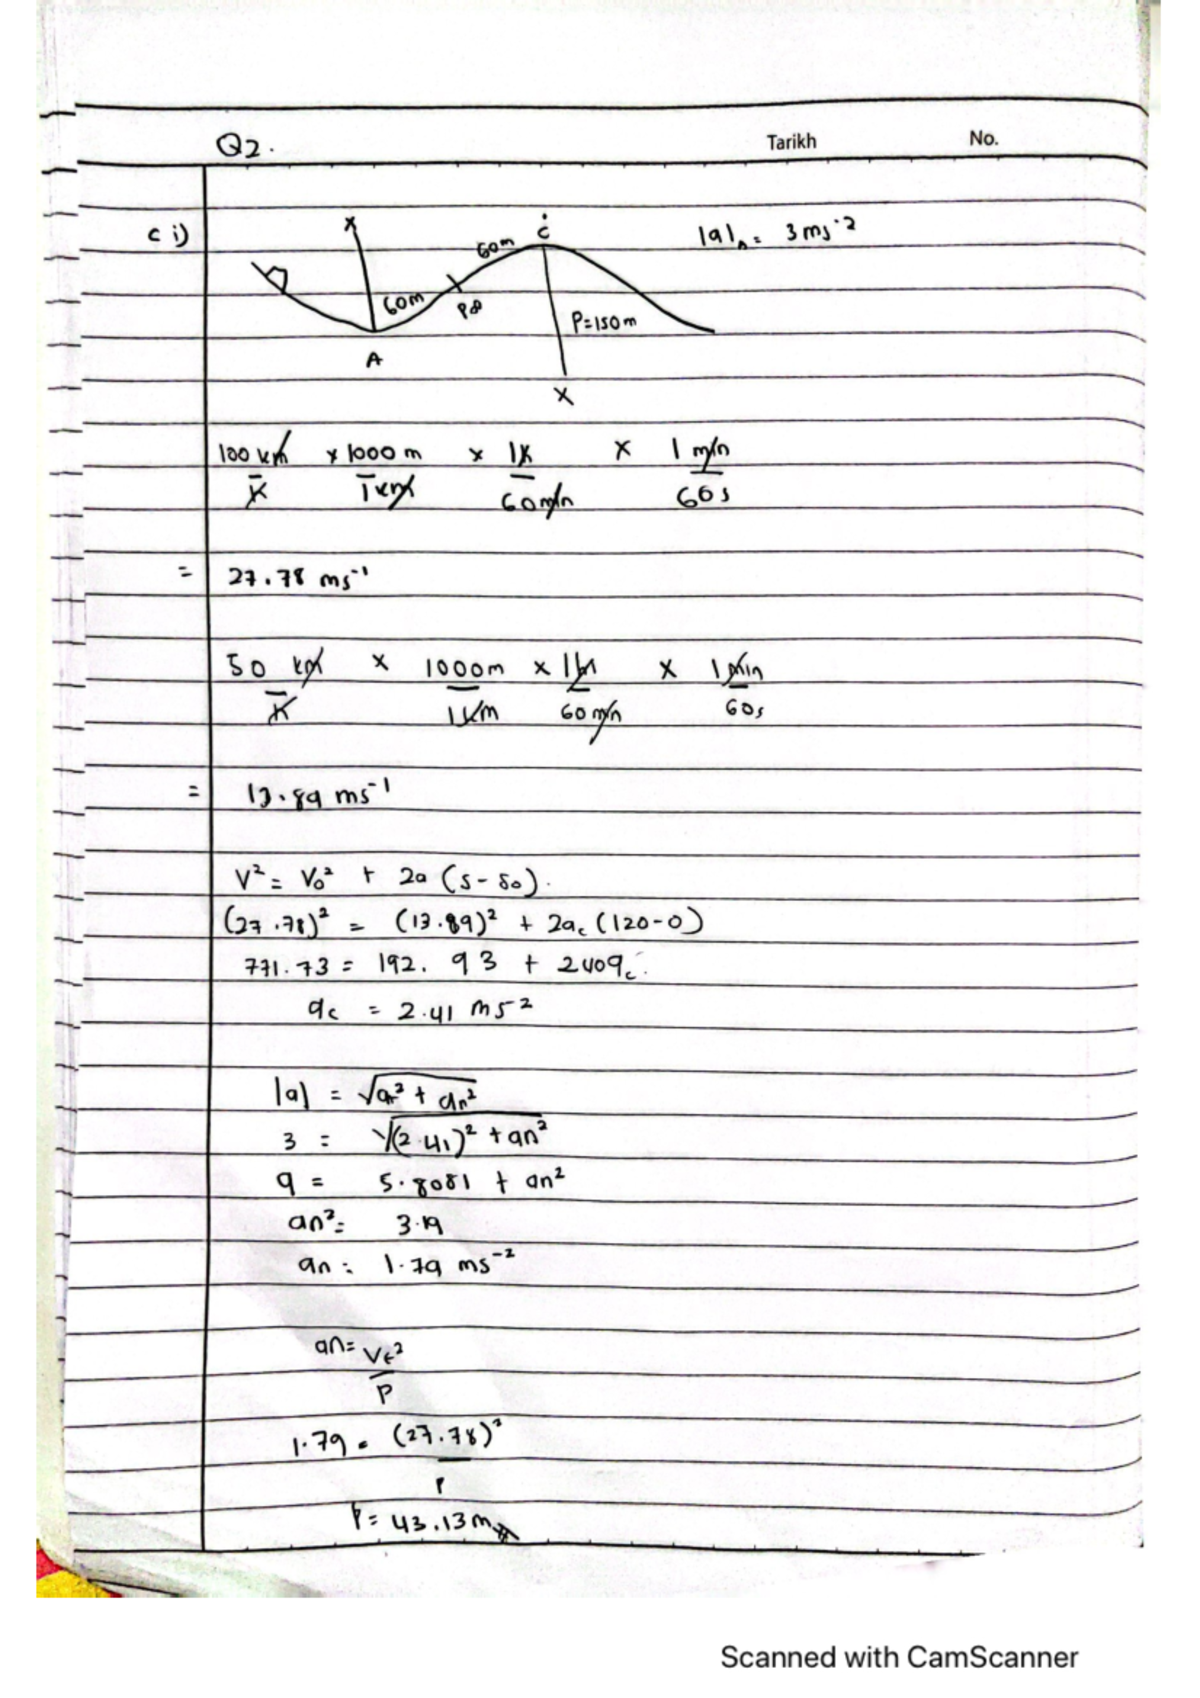 Q2.
Tarikh
No.
c i)
X
60m
C
|a|A = 3 ms-2
60m
P∞
P=150m
A
X
100 km/h × 1000 m/1 km × 1h/60min × 1 min/60s
= 27.78 ms⁻¹
50 km/h × 1000m/1km × 1h/60min × 1min/60s
= 13.89 ms⁻¹
V² = V₀² + 2a (s - s₀).
(27.78)² = (13.89)² + 2ac (120-0)
771.73 = 192.93 + 240ac.
ac = 2.41 ms-2
|a| = √at² + an²
3 = √(2.41)² + an²
9 = 5.8081 + an²
an² = 3.19
an = 1.79 ms⁻²
an = Vt²/P
1.79 = (27.78)²/P
P = 43.13m
Scanned with CamScanner